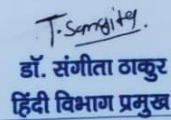 T. Sangita.
डॉ. संगीता ठाकुर
हिंदी विभाग प्रमुख